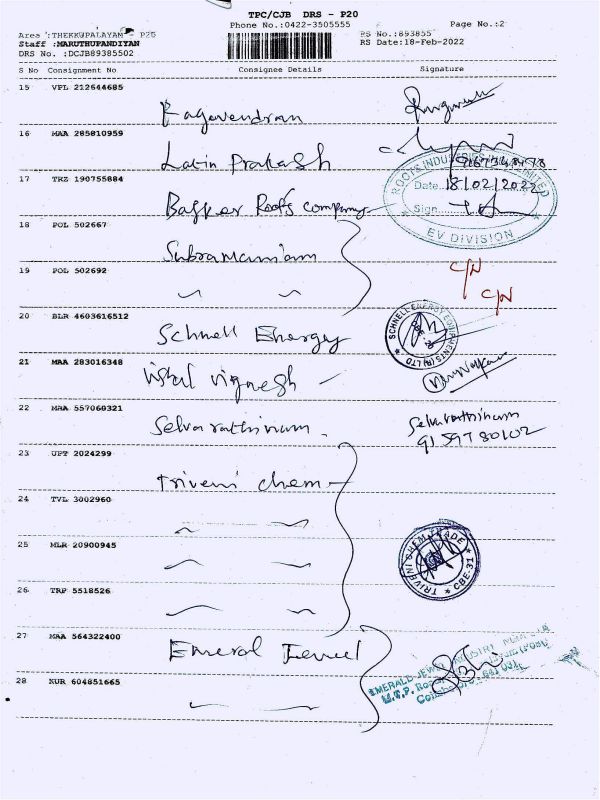 TPC/CJB DRS - P20
Phone No.:0422-3505555
Page No.:2
Area :THEKKUPALAYAM - P20
RS No.:893855
Staff :MARUTHUPANDIYAN
RS Date:18-Feb-2022
DRS No. :DCJB89385502
S No Consignment No Consignee Details Signature
15 VPL 212644685
Ragavendran
16 MAA 285810959
Latin Prakash
17 TRZ 190755884
ROOTS INDUSTRIES LIMITED
Date 18/02/2022
Basker Roots company
Sign
EV DIVISION
18 POL 502667
Subramaniam
19 POL 502692
C/N
C/N
20 BLR 4603616512
Schnell Energy
SCHNELL ENERGY EQUIPMENTS (P) LTD
21 MAA 283016348
vignesh
22 MAA 557060321
Selvarathinam
Selvarathinam
23 UPT 2024299
Triveni chem
24 TVL 3002960
25 MLR 20900945
TRIVENI CHEM TRADE
CBE-31
26 TRP 5518526
27 MAA 564322400
Emerol Jewel
EMERALD JEWEL INDUSTRY
28 NUR 604851665